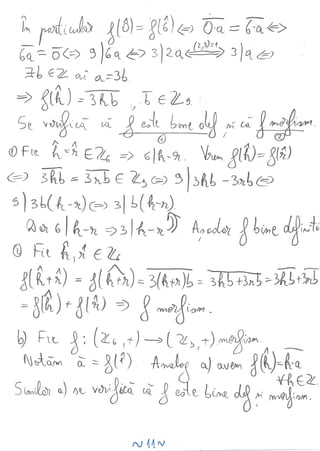 În particular f(0̂) = f(6̂) ⇔ \overline{0·a} = \overline{6·a} ⇔
\overline{6a} = \overline{0} ⇔ 9|6a ⇔ 3|2a ⇔^{(2,3)=1} 3|a ⇔
∃b∈ℤ aî a=3b.
⇒ f(k̂) = \overline{3kb}, \overline{b}∈ℤ₉.
Se verifică că f este bine def și că f morfism.
① ②
① Fie k̂ = r̂ ∈ ℤ₆ ⇒ 6|k-r. Vrem f(k̂) = f(r̂)
⇔ \overline{3kb} = \overline{3rb} ∈ ℤ₉ ⇔ 9|3kb - 3rb ⇔
9|3b(k-r) ⇔ 3|b(k-r)
Dar 6|k-r ⇒ 3|k-r. Așadar f bine definită
② Fie k̂, r̂ ∈ ℤ₆
f(k̂+r̂) = f(\widehat{k+r}) = \overline{3(k+r)b} = \overline{3kb+3rb} = \overline{3kb}+\overline{3rb}
= f(k̂) + f(r̂) ⇒ f morfism.
b) Fie f: (ℤ₆,+) → (ℤ₅,+) morfism.
Notăm \overline{a} = f(1̂). Analog a) avem f(k̂) = \overline{k·a}
∀k∈ℤ
Similar a) se verifică că f este bine def și morfism.
~11~